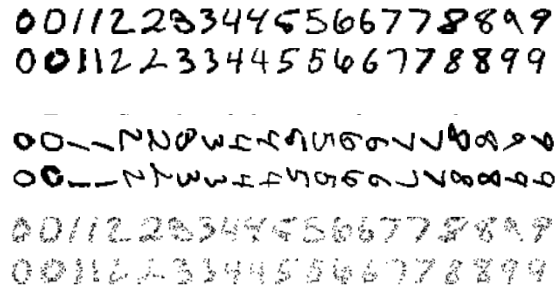 00112233445566778899
00112233445566778899
00112233445566778899
00112233445566778899
00112233445566778899
00112233445566778899